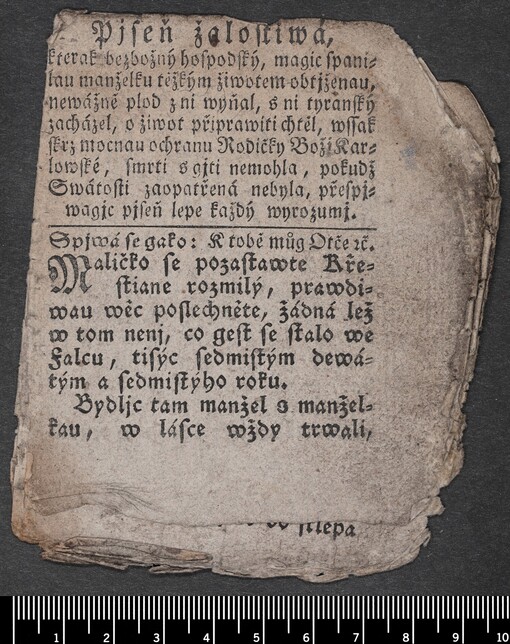 Pjseň žalostiwá,
kterak bezbožný hospodský, magic spani-
lau manželku těžkým žiwotem obtjženau,
newážně plod z nj wyňal, s ni tyranský
zacházel, o žiwot připrawiti chtěl, wssak
skrz mocnau ochranu Rodičky Božj Kar-
lowské, smrti s gjti nemohla, pokudž
Swátosti zaopatřená nebyla, přespj-
wagic pjseň lepe každý wyrozumj.
Spjwá se gako: K tobě můg Otče ꝛč.
Maličko se pozastawte Kře-
stiane rozmilý, prawdi-
wau wěc poslechněte, žádná lež
w tom nenj, co gest se stalo we
Falcu, tisýc sedmistým dewá-
tým a sedmistýho roku.
Bydljc tam manžel s manžel-
kau, w lásce wždy trwali,
1 2 3 4 5 6 7 8 9 10